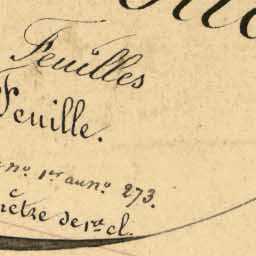 Feuilles
Feuille.
no. 1er au no. 273.
de 1re cl.